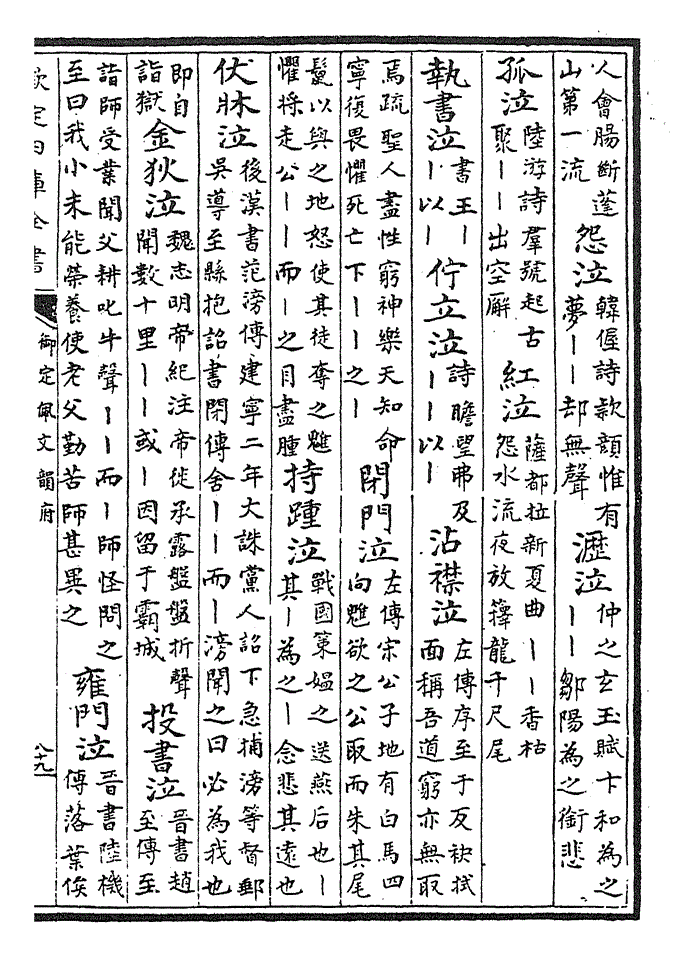 人會腸斷蓬山第一流 怨泣 韓偓詩歛顔惟有夢丨丨却無聲 瀝泣 仲之玄玉賦卞和為之丨丨鄒陽為之銜悲
孤泣 陸游詩羣號起古聚丨丨出空廨 紅泣 薩都拉新夏曲丨丨香枯怨水流夜放籜龍千尺尾
執書泣 書王丨丨以丨 佇立泣 詩瞻望弗及丨丨以丨 沾襟泣 左傳序至于反袂拭面稱吾道窮亦無取
焉疏聖人盡性窮神樂天知命寧復畏懼死亡下丨丨之丨 閉門泣 左傳宋公子地有白馬四向魋欲之公取而朱其尾
鬛以與之地怒使其徒奪之魋懼将走公丨丨而丨之目盡腫 持踵泣 戰國策媪之送燕后也丨其丨為之丨念悲其遠也
伏牀泣 後漢書范滂傳建寧二年大誅黨人詔下急捕滂等督郵吳導至縣抱詔書閉傳舍丨丨而丨滂聞之曰必為我也
即自詣獄 金狄泣 魏志明帝紀注帝徙承露盤盤折聲聞數十里丨丨或丨因留于霸城 投書泣 晉書趙至傳至
詣師受業聞父耕叱牛聲丨丨而丨師怪問之至曰我小未能榮養使老父勤苦師甚異之 雍門泣 晉書陸機傳落葉俟
欽定四庫全書 御定佩文韻府 八十九